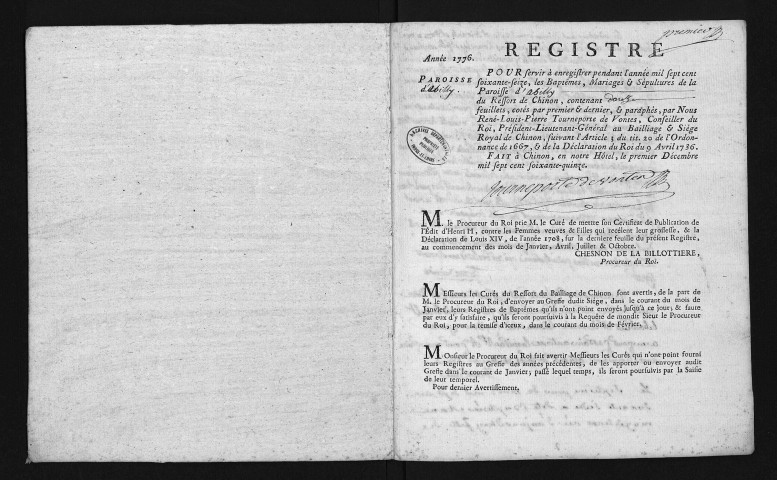 premier
REGISTRE
Année 1776.
PAROISSE
d'Abilly.
POUR servir à enregistrer pendant l'année mil sept cent
soixante-seize, les Baptêmes, Mariages & Sépultures de la
Paroisse d'Abilly
du Ressort de Chinon, contenant douze
feuillets, cotés par premier & dernier, & paraphés, par Nous
René-Louis-Pierre Tourneporte de Vontes, Conseiller du
Roi, Président-Lieutenant-Général au Bailliage & Siège
Royal de Chinon, suivant l'Article 3 du tit. 20 de l'Ordon-
nance de 1667, & de la Déclaration du Roi du 9 Avril 1736.
FAIT à Chinon, en notre Hôtel, le premier Décembre
mil sept cent soixante-quinze.
Tourneporte de vontes
M. le Procureur du Roi prie M. le Curé de mettre son Certificat de Publication de
l'Édit d'Henri II, contre les Femmes veuves & filles qui recèlent leur grossesse, & la
Déclaration de Louis XIV, de l'année 1708, sur la derniere feuille du présent Registre,
au commencement des mois de Janvier, Avril, Juillet & Octobre.
CHESNON DE LA BILLOTTIERE,
Procureur du Roi.
MEssieurs les Curés du Ressort du Bailliage de Chinon sont avertis, de la part de
M. le Procureur du Roi, d'envoyer au Greffe dudit Siège, dans le courant du mois de
Janvier, leurs Registres de Baptêmes qu'ils n'ont point envoyés jusqu'à ce jour; & faute
par eux d'y satisfaire, qu'ils seront poursuivis à la Requête de mondit Sieur le Procureur
du Roi, pour la remise d'iceux, dans le courant du mois de Février.
MOnsieur le Procureur du Roi fait avertir Messieurs les Curés qui n'one point fourni
leurs Registres au Greffe des années précédentes, de les apporter ou envoyer audit
Greffe dans le courant de Janvier; passé lequel temps, ils seront poursuivis par la Saisie
de leur temporel.
Pour dernier Avertissement.